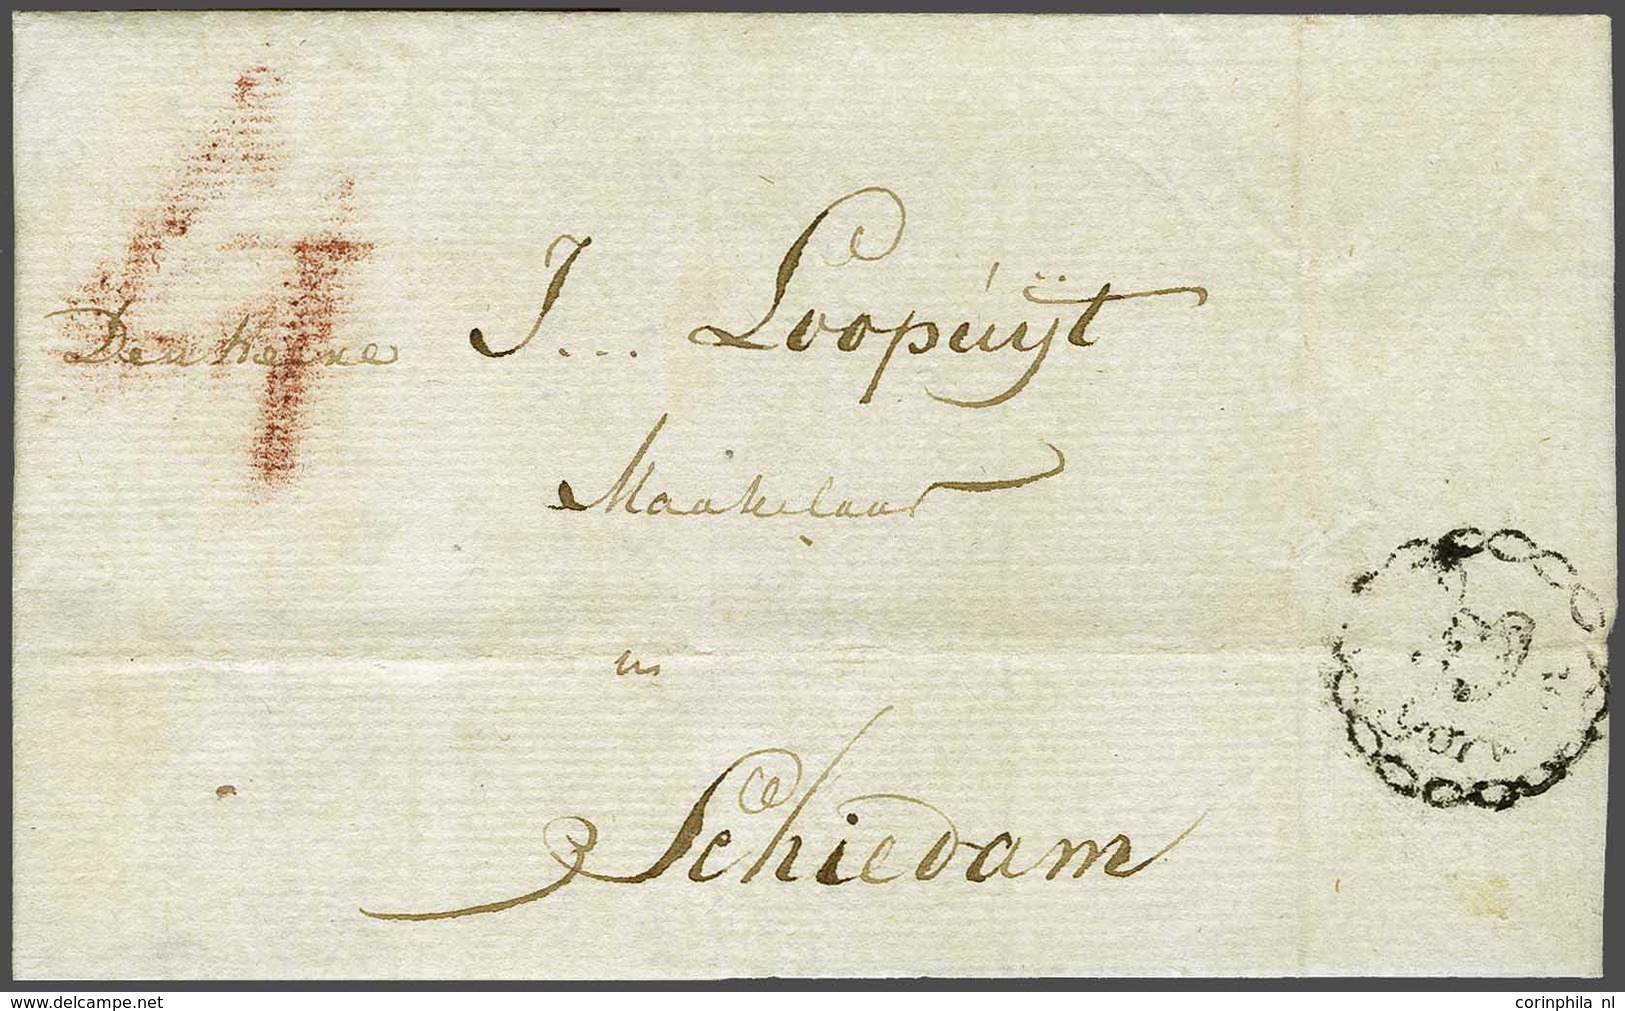 4
Den Heere
J... Loopuÿt
Maakelaar
in
Schiedam
www.delcampe.net
corinphila nl